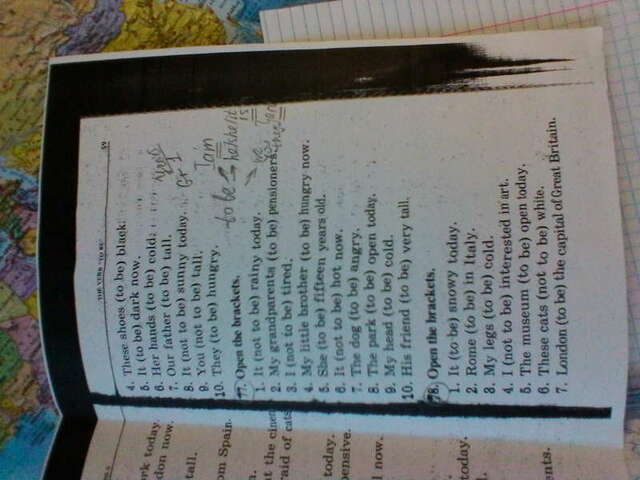 THE VERB "TO BE"
59
4. These shoes (to be) black.
5. It (to be) dark now.
6. Her hands (to be) cold.
7. Our father (to be) tall.
8. It (not to be) sunny today.
9. You (not to be) tall.
10. They (to be) hungry.
Gr
I
I am
to be
he/she/it
is
we
you
they
are
77. Open the brackets.
1. It (not to be) rainy today.
2. My grandparents (to be) pensioners.
3. I (not to be) tired.
4. My little brother (to be) hungry now.
5. She (to be) fifteen years old.
6. It (not to be) hot now.
7. The dog (to be) angry.
8. The park (to be) open today.
9. My head (to be) cold.
10. His friend (to be) very tall.
78. Open the brackets.
1. It (to be) snowy today.
2. Rome (to be) in Italy.
3. My legs (to be) cold.
4. I (not to be) interested in art.
5. The museum (to be) open today.
6. These cats (not to be) white.
7. London (to be) the capital of Great Britain.
today.
now.
tall.
Spain.
at the
cats
today.
now.
today.